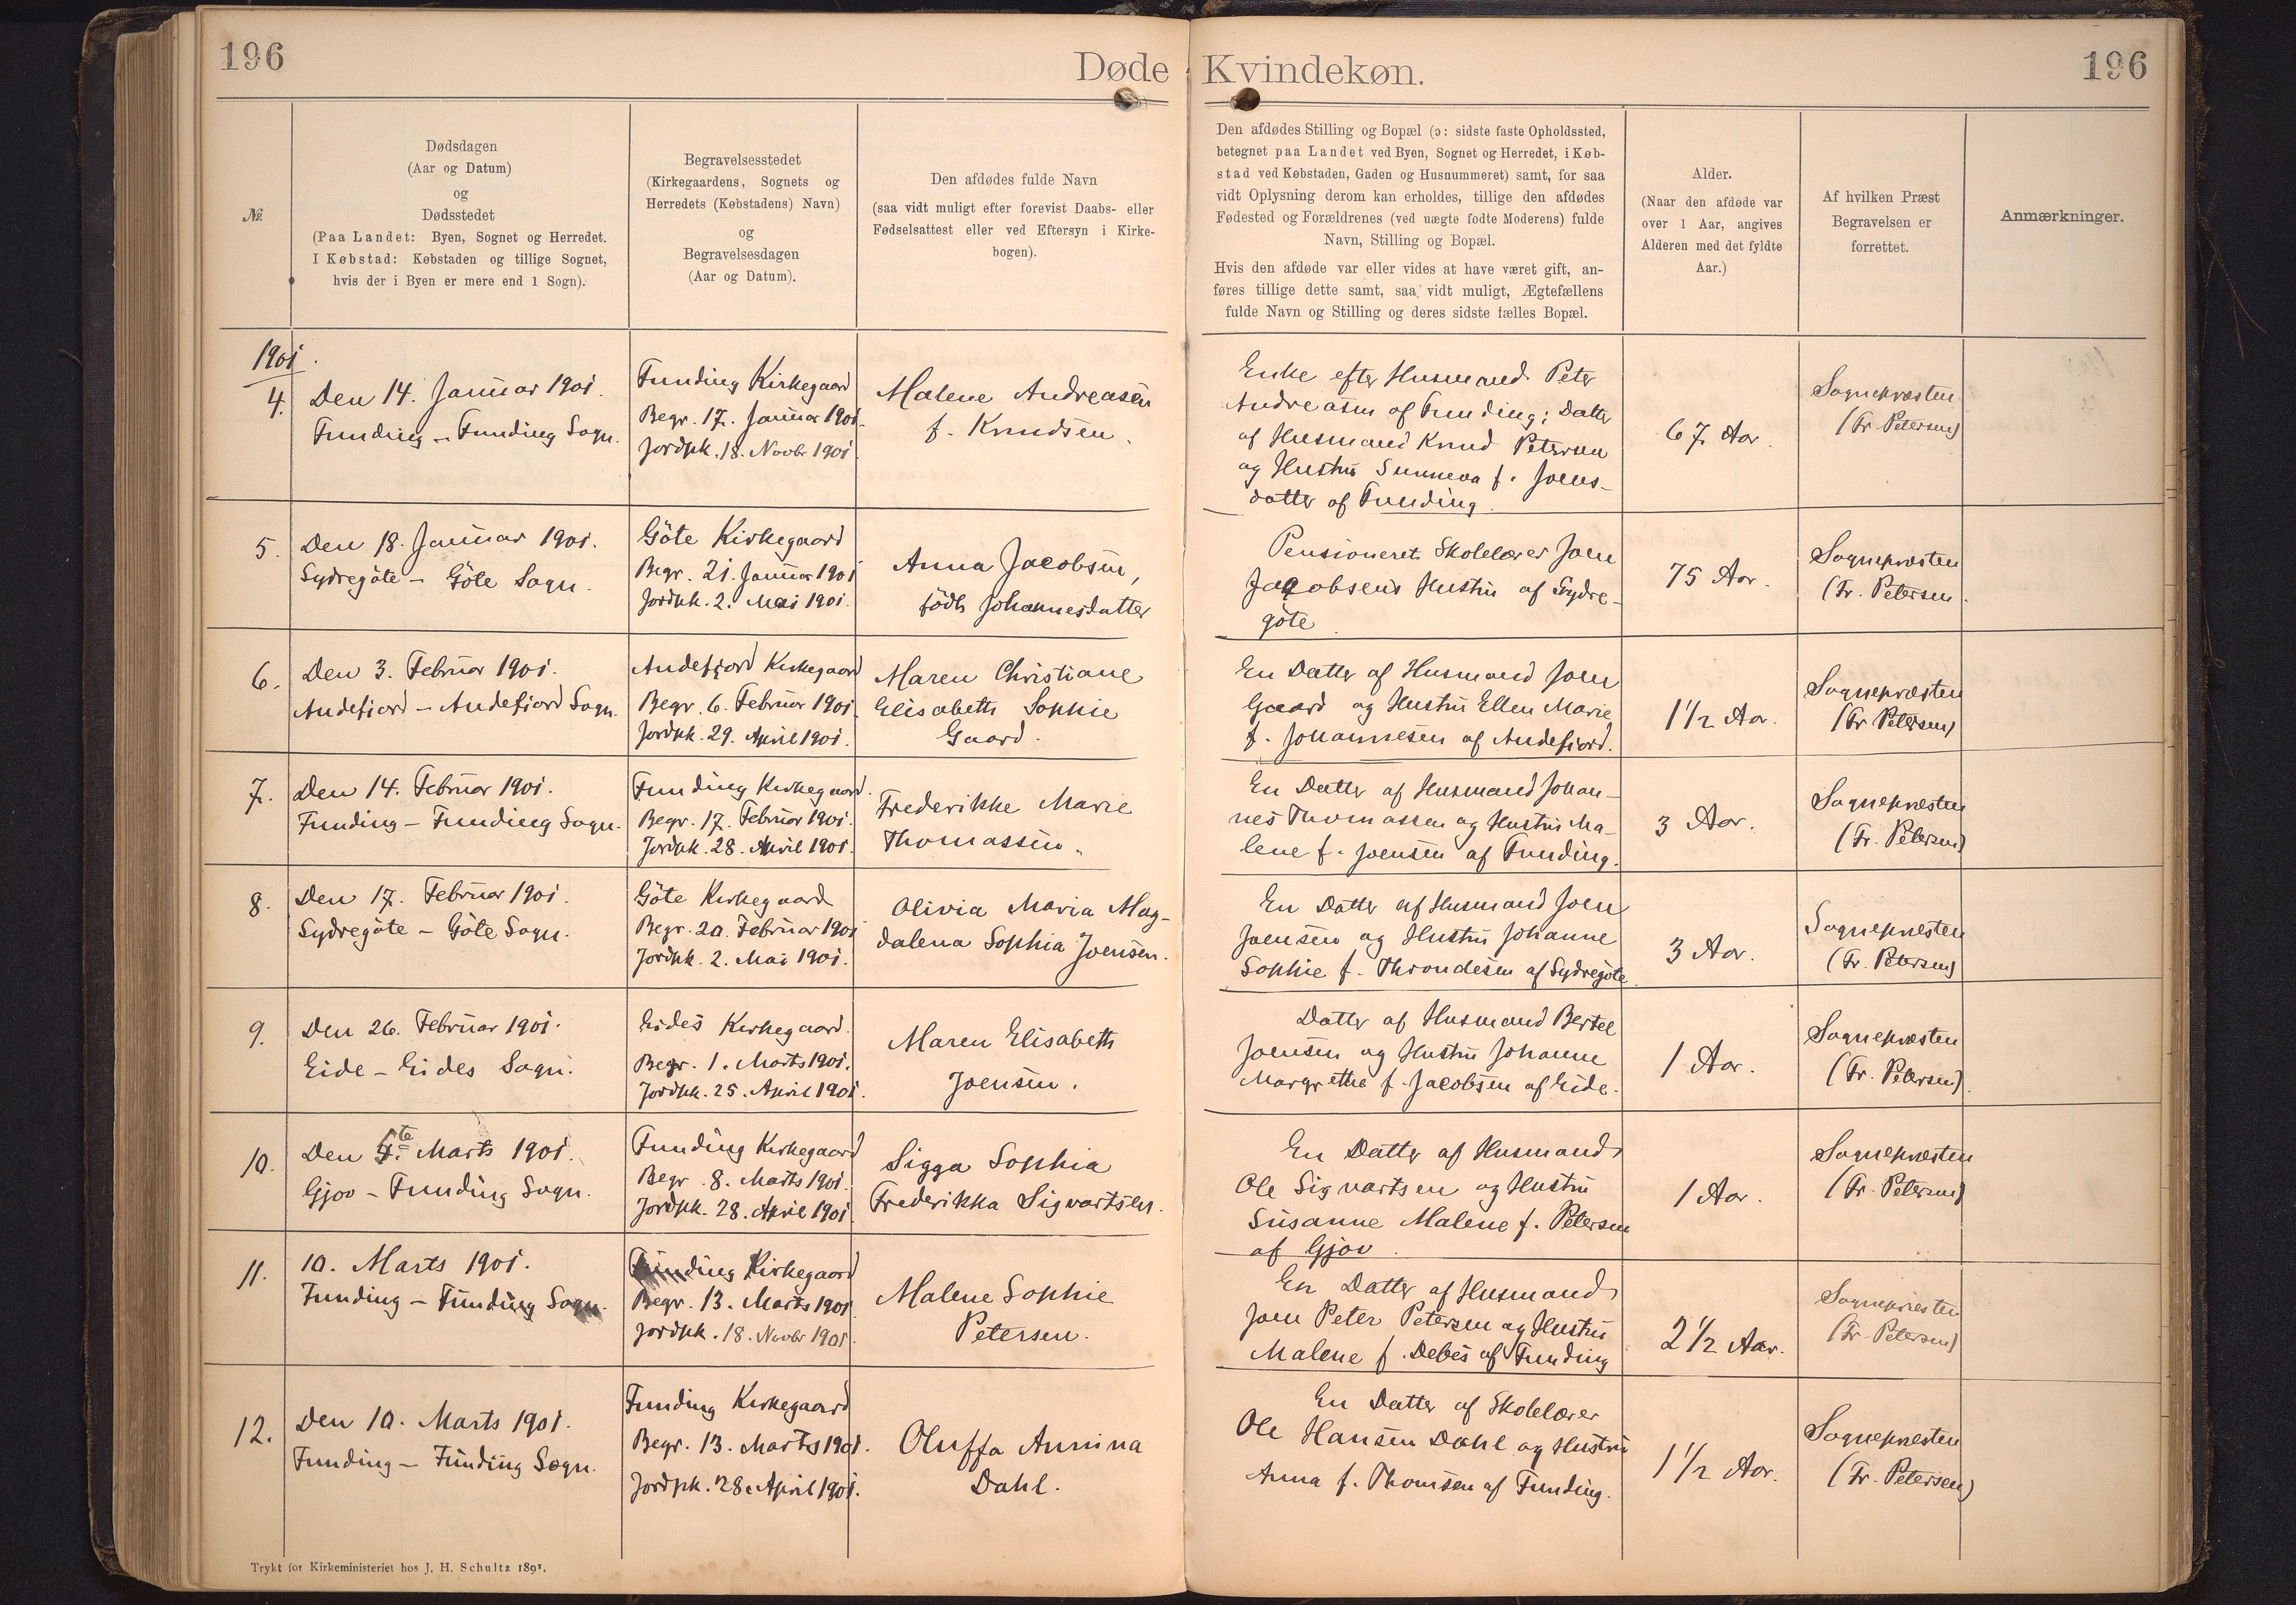 196
Døde
Kvindekøn.
196
№
Dødsdagen
(Aar og Datum)
og
Dødsstedet
(Paa Landet: Byen, Sognet og Herredet.
I Købstad: Købstaden og tillige Sognet,
hvis der i Byen er mere end 1 Sogn).
Begravelsesstedet
(Kirkegaardens, Sognets og
Herredets (Købstadens) Navn)
og
Begravelsesdagen
(Aar og Datum).
Den afdødes fulde Navn
(saa vidt muligt efter forevist Daabs- eller
Fødselsattest eller ved Eftersyn i Kirke-
bogen).
Den afdødes Stilling og Bopæl (ɔ: sidste faste Opholdssted,
betegnet paa Landet ved Byen, Sognet og Herredet, i Køb-
stad ved Købstaden, Gaden og Husnummeret) samt, for saa
vidt Oplysning derom kan erholdes, tillige den afdødes
Fødested og Forældrenes (ved uægte fødte Moderens) fulde
Navn, Stilling og Bopæl.
Hvis den afdøde var eller vides at have været gift, an-
føres tillige dette samt, saa vidt muligt, Ægtefællens
fulde Navn og Stilling og deres sidste fælles Bopæl.
Alder.
(Naar den afdøde var
over 1 Aar, angives
Alderen med det fyldte
Aar.)
Af hvilken Præst
Begravelsen er
forrettet.
Anmærkninger.
1901.
4.
Den 14. Januar 1901.
Funding – Funding Sogn.
Funding Kirkegaard
Begr. 17. Januar 1901.
Jordpk. 18. Novbr 1901.
Malene Andreasen
f. Knudsen.
Enke efter Husmand Peter
Andreasen af Funding; Datter
af Husmand Knud Petersen
og Hustru Sunneva f. Joens-
datter af Funding.
67 Aar.
Sognepræsten
(Fr. Petersen)
5.
Den 18. Januar 1901.
Sydregöte – Göte Sogn.
Göte Kirkegaard
Begr. 21. Januar 1901
Jordpk. 2. Mai 1901.
Anna Jacobsen,
födt Johannesdatter
Pensioneret Skolelærer Joen
Jacobsens Hustru af Sydre-
göte.
75 Aar.
Sognepræsten
(Fr. Petersen.
6.
Den 3. Februar 1901.
Andefiord – Andefiord Sogn.
Andefjord Kirkegaard
Begr. 6. Februar 1901.
Jordpk. 29. April 1901.
Maren Christiane
Elisabeth Sophie
Gaard.
En Datter af Husmand Joen
Gaard og Hustru Ellen Marie
f. Johannesen af Andefiord.
1 1/2 Aar.
Sognepræsten
(Fr Petersen)
7.
Den 14. Februar 1901.
Funding – Funding Sogn.
Funding Kirkegaard.
Begr. 17. Februar 1901.
Jordpk. 28. April 1901.
Frederikke Marie
Thomassen.
En Datter af Husmand Johan-
nes Thomassen og Hustru Ma-
lene f. Joensen af Funding.
3 Aar.
Sognepræsten
(Fr. Petersen)
8.
Den 17. Februar 1901.
Sydregöte – Göte Sogn.
Göte Kirkegaard
Begr. 20. Februar 1901
Jordpk. 2. Mai 1901.
Olivia Maria Mag-
dalena Sophia Joensen.
En Datter af Husmand Joen
Joensen og Hustru Johanne
Sophie f. Throndesen af Sydregöte.
3 Aar.
Sognepræsten
(Fr. Petersen)
9.
Den 26. Februar 1901.
Eide – Eides Sogn.
Eides Kirkegaard.
Begr. 1. Marts 1901.
Jordpk. 25. April 1901.
Maren Elisabeth
Joensen.
Datter af Husmand Bertel
Joensen og Hustru Johanne
Margrethe f. Jacobsen af Eide.
1 Aar.
Sognepræsten
(Fr. Petersen).
10.
Den 5te Marts 1901.
Gjov – Funding Sogn.
Funding Kirkegaard
Begr. 8. Marts 1901.
Jordpk. 28. April 1901.
Sigga Sophia
Frederikka Sigvartsen.
En Datter af Husmand
Ole Sigvartsen og Hustru
Susanne Malene f. Petersen
af Gjov.
1 Aar.
Sognepræsten
(Fr. Petersen)
11.
10. Marts 1901.
Funding – Funding Sogn.
Funding Kirkegaard
Begr. 13. Marts 1901
Jordpk. 18. Novbr 1901.
Malene Sophie
Petersen.
En Datter af Husmand
Joen Peter Petersen og Hustru
Malene f. Debes af Funding
2 1/2 Aar.
Sognepræsten
(Fr. Petersen)
12.
Den 10. Marts 1901.
Funding – Funding Sogn.
Funding Kirkegaard
Begr. 13. Marts 1901.
Jordpk. 28. April 1901.
Oluffa Annina
Dahl.
En Datter af Skolelærer
Ole Hansen Dahl og Hustru
Anna f. Thomsen af Funding.
1 1/2 Aar.
Sognepræsten
(Fr. Petersen)
Trykt for Kirkeministeriet hos J. H. Schultz 1891.